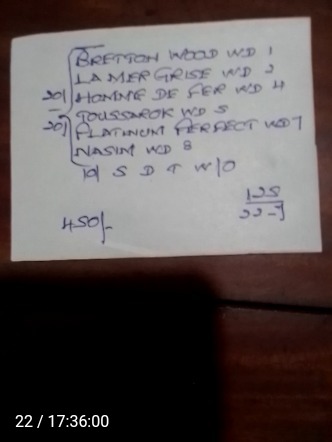 BRETTON WOOD WD 1
LA MER GRISE WD 2
20/ HOMME DE FER WD 4
20/ TOUSSAROK WD 5
PLATINUM PERFECT WD 7
NASIM WD 8
10/ S D T W/O
125
450/-
22 / 17:36:00